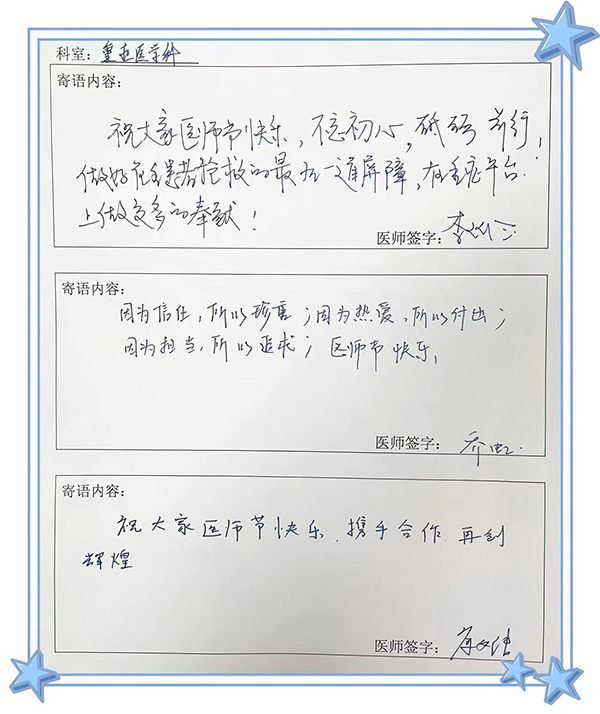 科室：重症医学科
寄语内容：
祝大家医师节快乐，不忘初心，砥砺前行，
做好危重患者抢救的最后一道屏障，在重症平台
上做更多的奉献！
医师签字：李
寄语内容：
因为信任，所以珍惜；因为热爱，所以付出；
因为担当，所以追求；医师节快乐，
医师签字：乔虹
寄语内容：
祝大家医师节快乐，携手合作 再创
辉煌
医师签字：